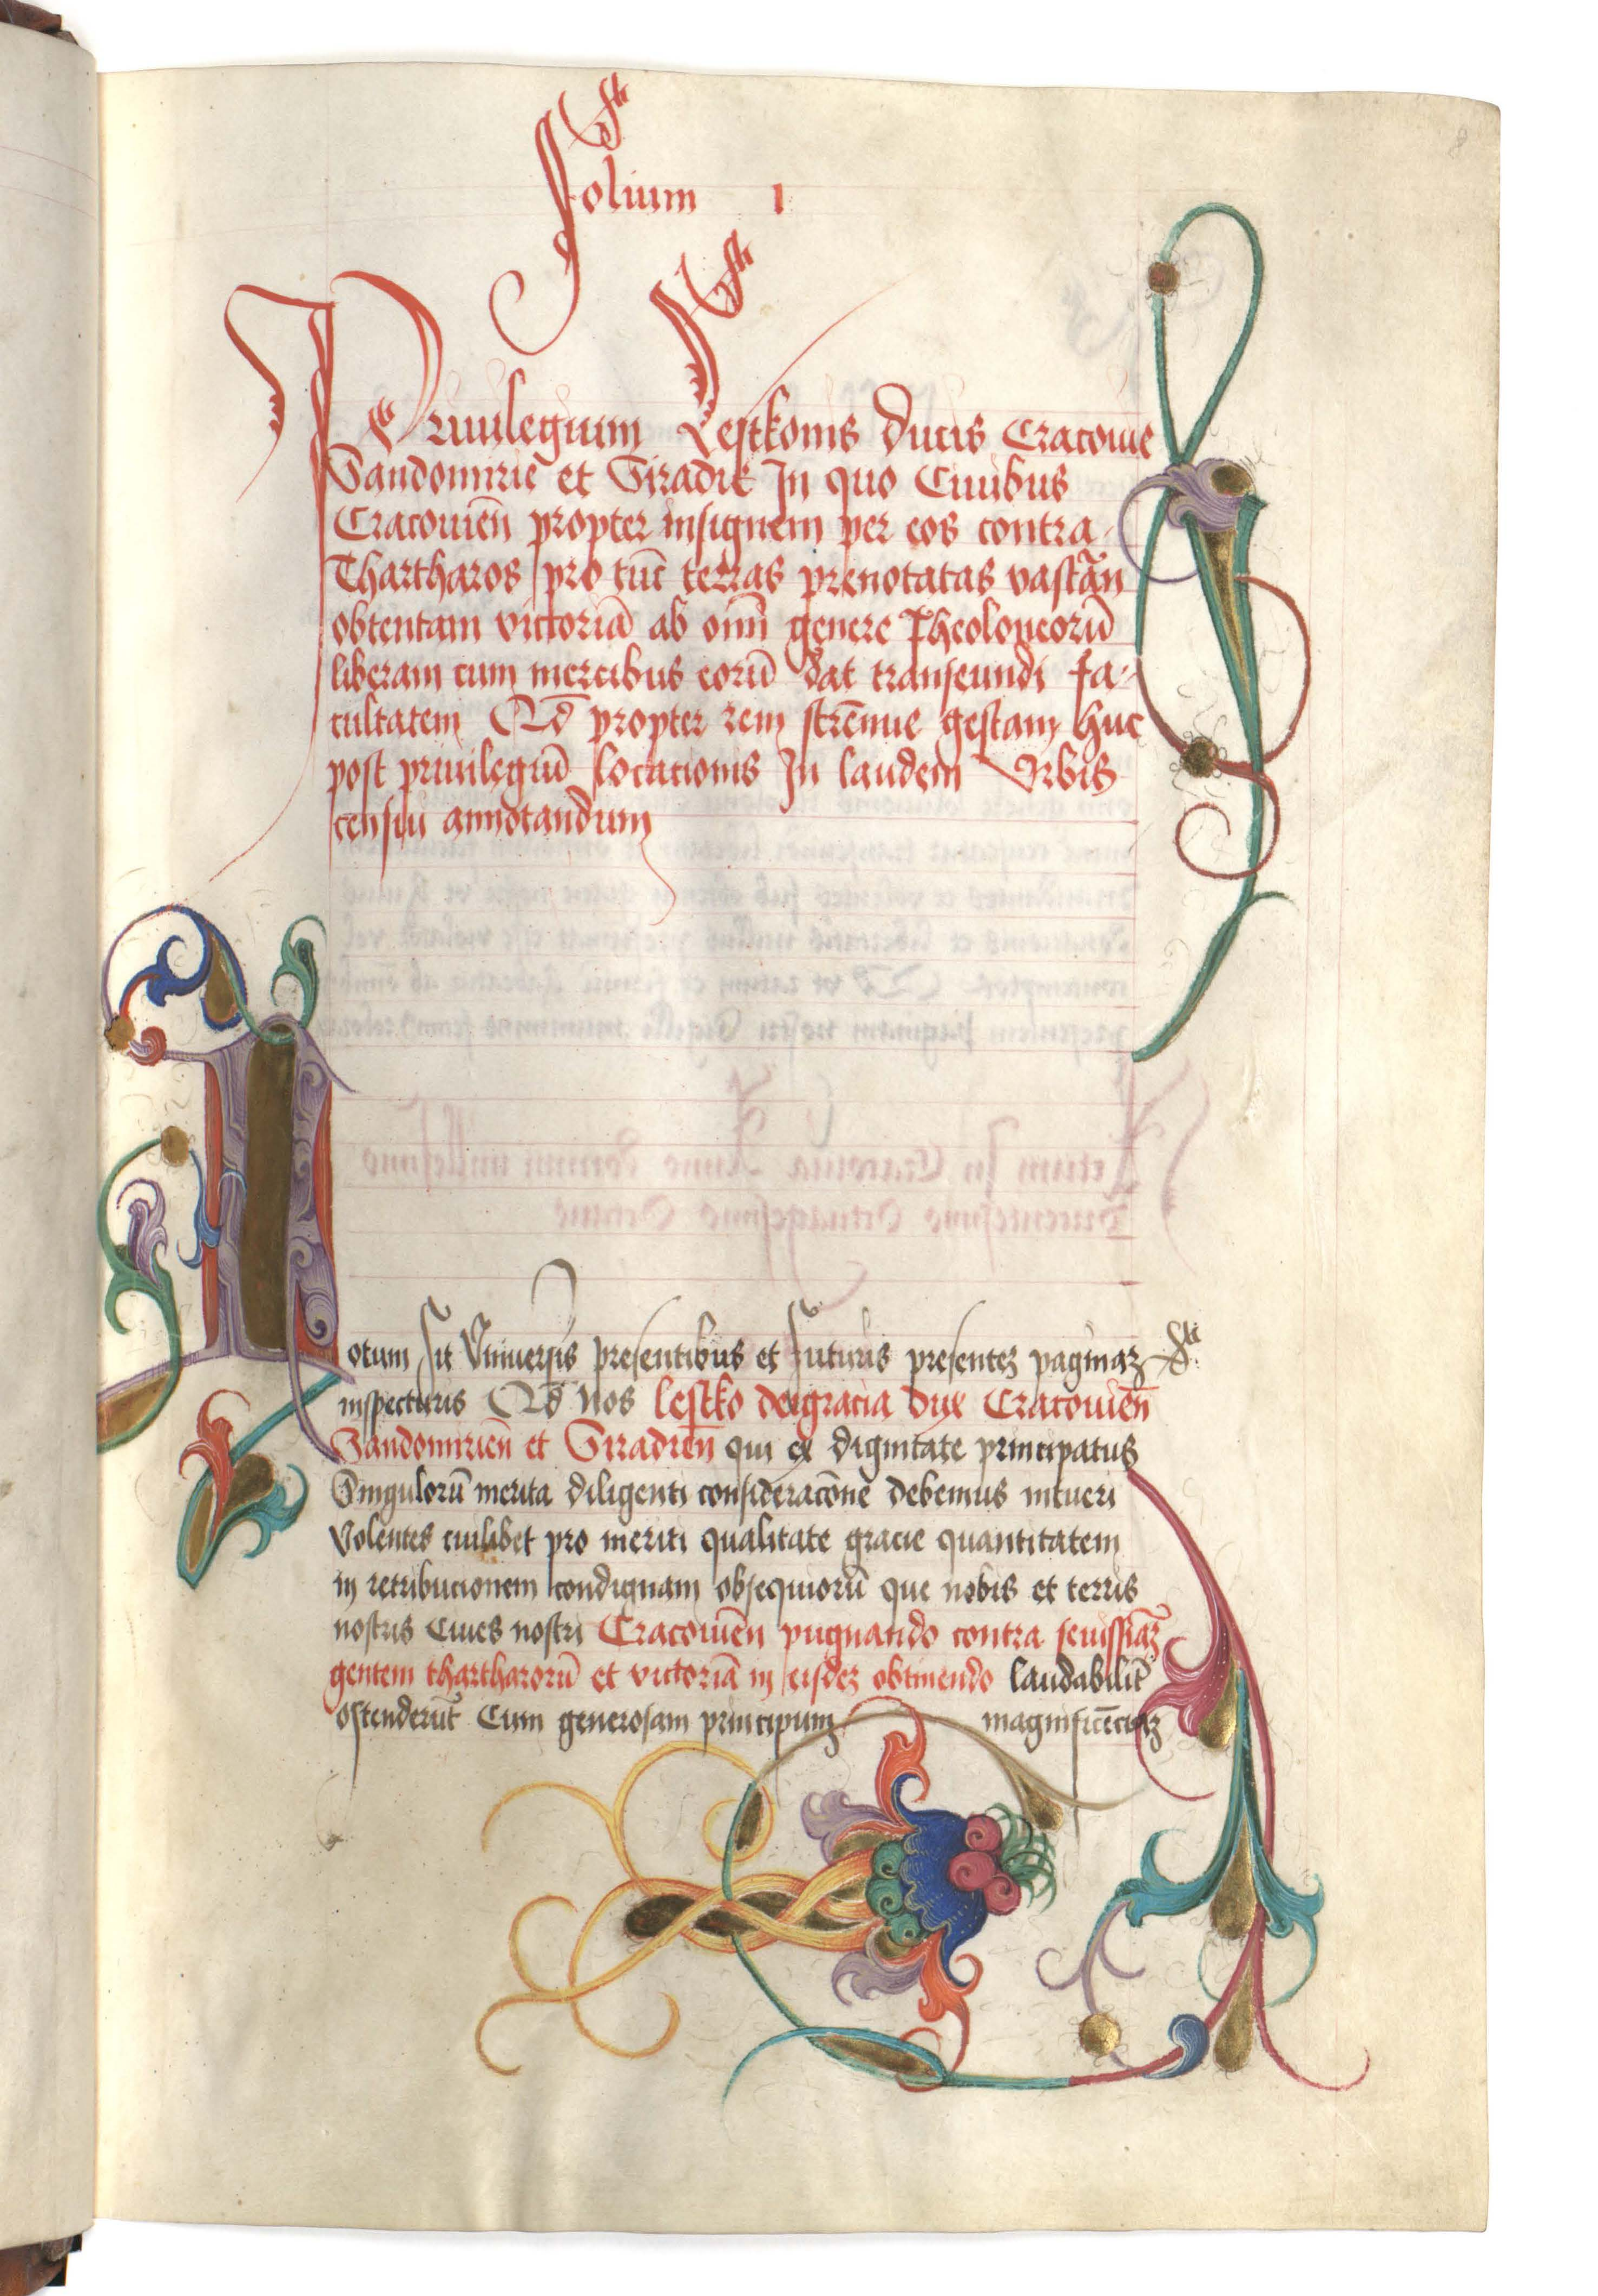 Folium 1
Priuilegium Lestkonis ducis Cracouie
Sandomirie et Siradie In quo Ciuibus
Cracouien̄ propter insignem per eos contra
Thartharos pro tūc terras prenotatas vastan̄
obtentam victoriā ab om̄i genere Theoloneorū
liberam cum mercibus eorū dat transeundi fa-
cultatem Qd̄ propter rem strēnue gestam huc
post priuilegiū locacionis In laudem Vrbis
censui annotandum
Notum sit Vniuersis presentibus et futuris presentez paginaz
inspecturis Qd̄ Nos Lestko deigracia Dux Cracouien̄
Sandomirien̄ et Siradien̄ qui ex dignitate principatus
Singulorū merita diligenti consideracōne debemus intueri
Volentes cuilibet pro meriti qualitate gracie quantitatem
in retribucionem condignam obsequiorū que nobis et terris
nostris Ciues nostri Cracouien̄ pugnando contra seuissīaz
gentem thartharorū et victoriā in eisdez obtinendo laudabilit̄
ostenderūt Cum generosam principum magnificēciaz